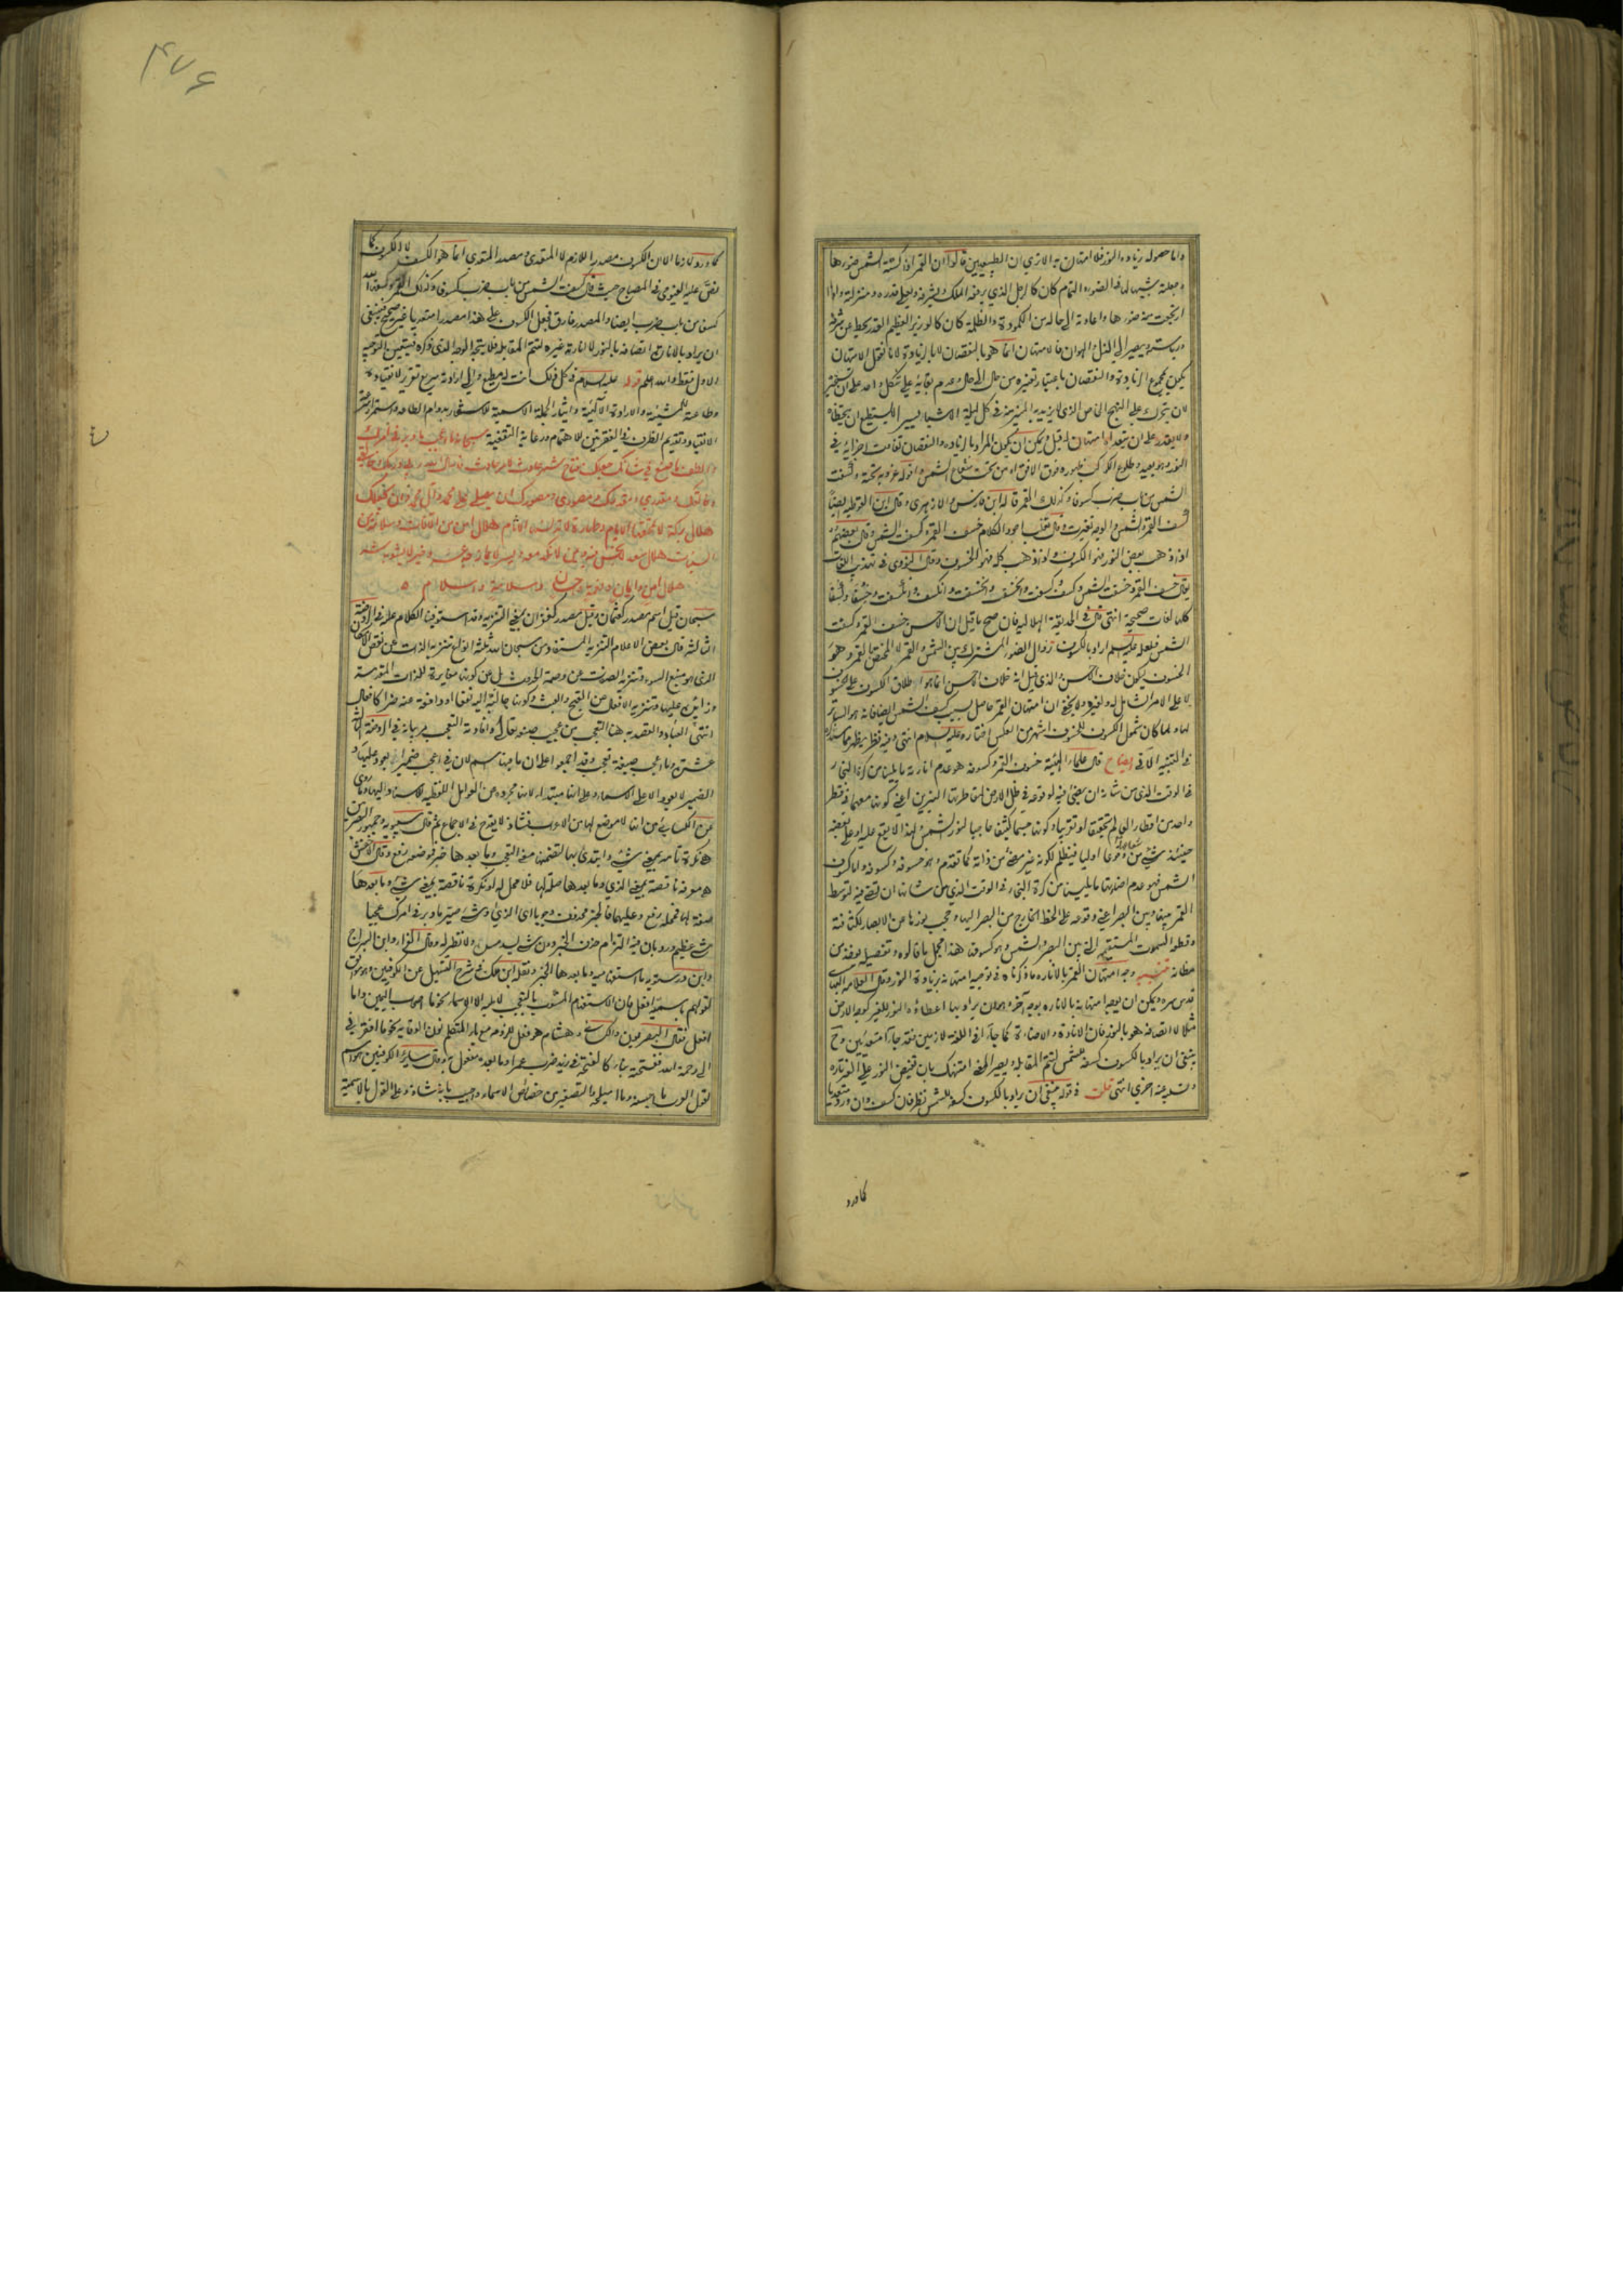 واما حصوله زيادة النور فلا امتهان به الا ترى ان الطبيعيين قالوا ان القمر اذا كسته الشمس ضوءها
وجعلته شبيها لها في الضوء التام كان كالرجل الذي يرفعه الملك ويشرفه ويعلي قدره ومنزلته واذا
ارتجعت منه ضوءها واعادته الى حاله من الكمودة والظلمة كان كالوزير العظيم القدر يحط عن شرفه
ورياسته ويصير الى الذل والهوان فالامتهان انما هو بالنقصان لا بالزيادة لانا نقول الامتهان
يكون بمجموع الزيادة والنقصان باعتبار تغيره من حال الى حال وعدم بقائه على شكل واحد
ولا يقدر على ان يتعداه امتهان له قيل ويمكن ان يكون المراد بالزيادة والنقصان تفاوت اجزائه في
النور وهو بعيد وطلوع الكوكب ظهوره فوق الافق او من تحت شعاع الشمس وافوله غروبه تحته وكسفت
الشمس من باب ضرب كسوفا وكذلك القمر قاله ابن فارس والازهري وقال ابن القوطية ايضا
كسف القمر والشمس والوجه تغيرت وقال ثعلب اجود الكلام خسف القمر وكسفت الشمس وقال بعضهم
اذا ذهب بعض النور فهو الكسوف واذا ذهب كله فهو الخسوف وقال النووي في تهذيب اللغات
يقال خسف القمر وخسفت الشمس وكسف وكسفت وانخسف وانخسفت وانكسف وانكسفت وخسفا وكسفا
كلها لغات صحيحة انتهى وقال في الحديقة الهلالية فان صح ما قيل ان الاحسن خسف القمر وكسفت
الشمس فلعله عليه السلم اراد بالكسوف زوال الضوء المشترك بين الشمس والقمر لا المختص بالقمر وهو
الخسوف ليكون خلاف الاحسن والذي قيل انه خلاف الاحسن انما هو اطلاق الكسوف على الخسوف
لا على الامر الشامل له ولغيره ولا يخفى ان امتهان القمر حاصل بسبب كسف الشمس ايضا فانه هو الساتر
لها ولما كان شمول الكسوف للخسوف اشهر من العكس اختاره عليه السلام انتهى وفيه نظر يظهر مما سنذكره
في التنبيه الآتي ايضاح قال علماء الهيئة خسوف القمر وكسوفه هو عدم انارته ما يلينا من كرة البخار
في الوقت الذي من شانه ان يضيئ فيه لوقوعه في ظل الارض
واحد من اقطار العالم تحقيقا او تقريبا وكونها جسما كثيفا حاجبا لنور الشمس
حينئذ شيئ من ضوئها اوليا فيظلم لكونه غير مضئ من ذاته كما تقدم وهو خسوفه وكسوفه واما كسوف
الشمس فهو عدم اضاءتها ما يلينا من كرة البخار في الوقت الذي من شانها ان تضئ فيه لتوسط
القمر بينها وبين البصر اعني وقوعه على الخط الخارج من البصر اليها وحجب نورها عن الابصار لكثافته
وقطعه السموت المستقيمة التي بين البصر والشمس وهو كسوفها هذا مجمل ما قالوه وتفصيله يوخذ من
مظانه تنبيه وجه امتهان القمر بالانارة ما ذكرناه في توجيه امتهانه بزيادة النور وقال العلامة البهائي
قدس سره ويمكن ان يوجه امتهانه بالانارة بوجه آخر وهو ان يراد بها اعطاؤه النور للغير كوجه الارض
مثلا لا اتصافه هو بالنور فان الانارة والاضاءة كما جاءا في اللغة لازمين فقد جاءا متعديين وح
ينبغي ان يراد بالكسوف كسفه للشمس لتتم المقابلة ويصير المعنى امتهنك بان تفيض النور على الغير تارة
وتسلبه عنه اخرى انتهى قلت في قوله ينبغي ان يراد بالكسوف كسفه للشمس نظر فان كسف وان ورد متعديا
كما ورد
۴۷۶
كما ورد لازما الا ان الكسوف مصدر اللازم لا المتعدي ومصدر المتعدي انما هو الكسف لا الكسوف كما
نص عليه الفيومي في المصباح حيث قال كسفت الشمس من باب ضرب كسوفا وكذلك القمر وكسفها الله
كسفا من باب ضرب ايضا والمصدر فارق فجعل الكسوف على هذا مصدرا متعديا غير صحيح فينبغي
ان يراد بالانارة اتصافه بالنور لا انارته غيره لتتم المقابلة فلا يتجه الوجه الذي ذكره فيتعين التوجيه
الاول فقط والله اعلم قوله عليه السلام في كل ذلك انت له مطيع والى ارادته سريع تقرير لانقياده
وطاعته للمشيئة والارادة الالهية وايثار الجملة الاسمية للاشعار بدوام الطاعة واستمرار
الانقياد وتقديم الظرف في الفقرتين للاهتمام ورعاية التقفية سبحانه ما اعجب ما دبر في امرك
والطف ما صنع في شانك جعلك مفتاح شهر حادث لامر حادث فاسال الله ربي وربك وخالقي
وخالقك ومقدري ومقدرك ومصوري ومصورك ان يصلي على محمد وآل محمد وان يجعلك
هلال بركة لا تمحقها الايام وطهارة لا تدنسها الاثام هلال امن من الآفات وسلامة من
السيئات هلال سعد لا نحس فيه ويمن لا نكد معه ويسر لا يمازجه عسر وخير لا يشوبه شر
هلال امن وايمان ونعمة واحسان وسلامة واسلام
سبحان قيل اسم مصدر كعثمان وقيل مصدر كغفران بمعنى التنزيه وقد استوفينا الكلام عليه في الروضة
الثالثة قال بعض الاعلام التنزيه المستفاد من سبحان الله ثلثة انواع تنزيه الذات عن نقص الامكان
الذي هو منبع السوء وتنزيه الصفات عن وصمة الحدوث بل عن كونها مغايرة للذات المقدسة
وزائدة عليها وتنزيه الافعال عن القبح والعبث وكونها جالبة اليه نفعا او دافعة عنه ضرا كافعال
انتهى العباد والمقصد به هنا التعجب من عجيب صنعه تعالى وافادته التعجب مر بيانه في الروضة
عشرة وما اعجب صيغة تعجب وقد اجمعوا على ان ما فيها اسم لان في اعجب ضميرا يعود عليها و
الضمير لا يعود الا على الاسماء وعلى انها مبتدأ لانها مجردة من العوامل اللفظية للاسناد اليها وما روي
عن الكسائي من انها لا موضع لها من الاعراب فشاذ لا يقدح في الاجماع ثم قال سيبويه وجمهور البصريين
هي نكرة تامة بمعنى شيء وابتدئ بها لتضمنها معنى التعجب وما بعدها خبر فموضعه رفع وقال الاخفش
هي معرفة ناقصة بمعنى الذي وما بعدها صلة لها فلا محل له او نكرة ناقصة بمعنى شيء وما بعدها
صفة لها فمحله رفع وعليهما فالخبر محذوف وجوبا اي الذي او شيء صير ما دبر في امرك عجيبا
شيء عظيم ورد بان فيه التزام حذف الخبر دون شيء يسد مسده ولا نظير له وقال الفراء وابن السراج
وابن درستويه ما استفهامية وما بعدها الخبر ونقله ابن مالك في شرح التسهيل عن الكوفيين وهو موافق
لقولهم باسمية افعل فان الاستفهام المشوب بالتعجب لا يليه الا الاسماء نحو ما اصحاب اليمين واما
افعل فقال البصريون والكسائي وهشام هو فعل للزومه مع ياء المتكلم نون الوقاية نحو ما افقرني
الى رحمة الله ففتحته بناء كالفتحة في زيد ضرب عمرا وما بعده مفعول به وقال سائر الكوفيين هو اسم
لقول العرب ما احيسنه وما اميلحه والتصغير من خصائص الاسماء واجيب بانه شاذ وعلى القول بالاسمية